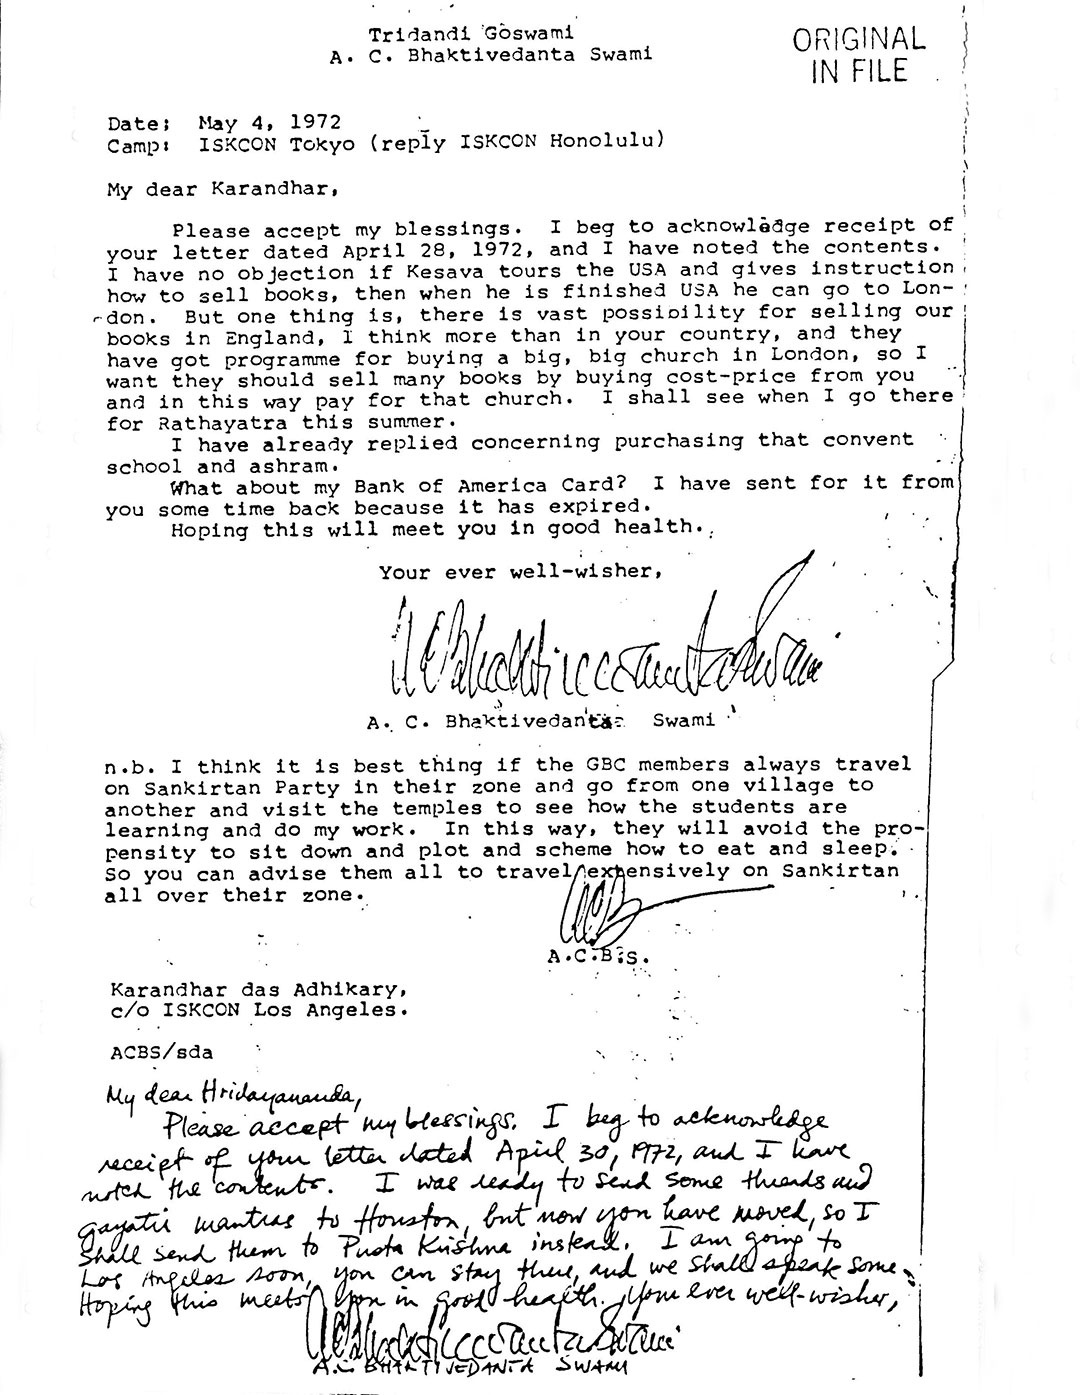 Tridandi Goswami
A. C. Bhaktivedanta Swami
ORIGINAL
IN FILE
Date; May 4, 1972
Camp: ISKCON Tokyo (reply ISKCON Honolulu)
My dear Karandhar,
Please accept my blessings. I beg to acknowledge receipt of
your letter dated April 28, 1972, and I have noted the contents.
I have no objection if Kesava tours the USA and gives instruction
how to sell books, then when he is finished USA he can go to Lon-
don. But one thing is, there is vast possibility for selling our
books in England, I think more than in your country, and they
have got programme for buying a big, big church in London, so I
want they should sell many books by buying cost-price from you
and in this way pay for that church. I shall see when I go there
for Rathayatra this summer.
I have already replied concerning purchasing that convent
school and ashram.
What about my Bank of America Card? I have sent for it from
you some time back because it has expired.
Hoping this will meet you in good health.
Your ever well-wisher,
A C Bhaktivedanta Swami
A. C. Bhaktivedanta Swami
n.b. I think it is best thing if the GBC members always travel
on Sankirtan Party in their zone and go from one village to
another and visit the temples to see how the students are
learning and do my work. In this way, they will avoid the pro-
pensity to sit down and plot and scheme how to eat and sleep.
So you can advise them all to travel extensively on Sankirtan
all over their zone.
ACB
A.C.B.S.
Karandhar das Adhikary,
c/o ISKCON Los Angeles.
ACBS/sda
My dear Hridayananda,
Please accept my blessings. I beg to acknowledge
receipt of your letter dated April 30, 1972, and I have
noted the contents. I was ready to send some threads and
gayatri mantras to Houston, but now you have moved, so I
shall send them to Pusta Krishna instead. I am going to
Los Angeles soon, you can stay there, and we shall speak some.
Hoping this meets you in good health. Your ever well-wisher,
A C Bhaktivedanta Swami
A.C. BHAKTIVEDANTA SWAMI